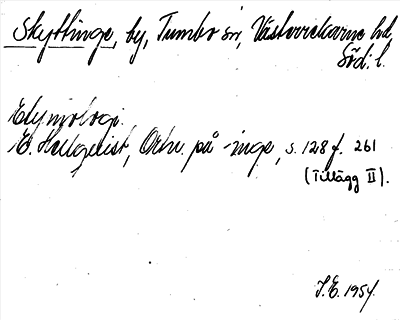 Skyttinge, by, Tumbo sn, Västerrekarne hd,
Söd. l.
Etymologi.
E. Hellquist, Ortn. på -inge, s. 128 f. 261
(Tillägg II).
S.E. 1954.